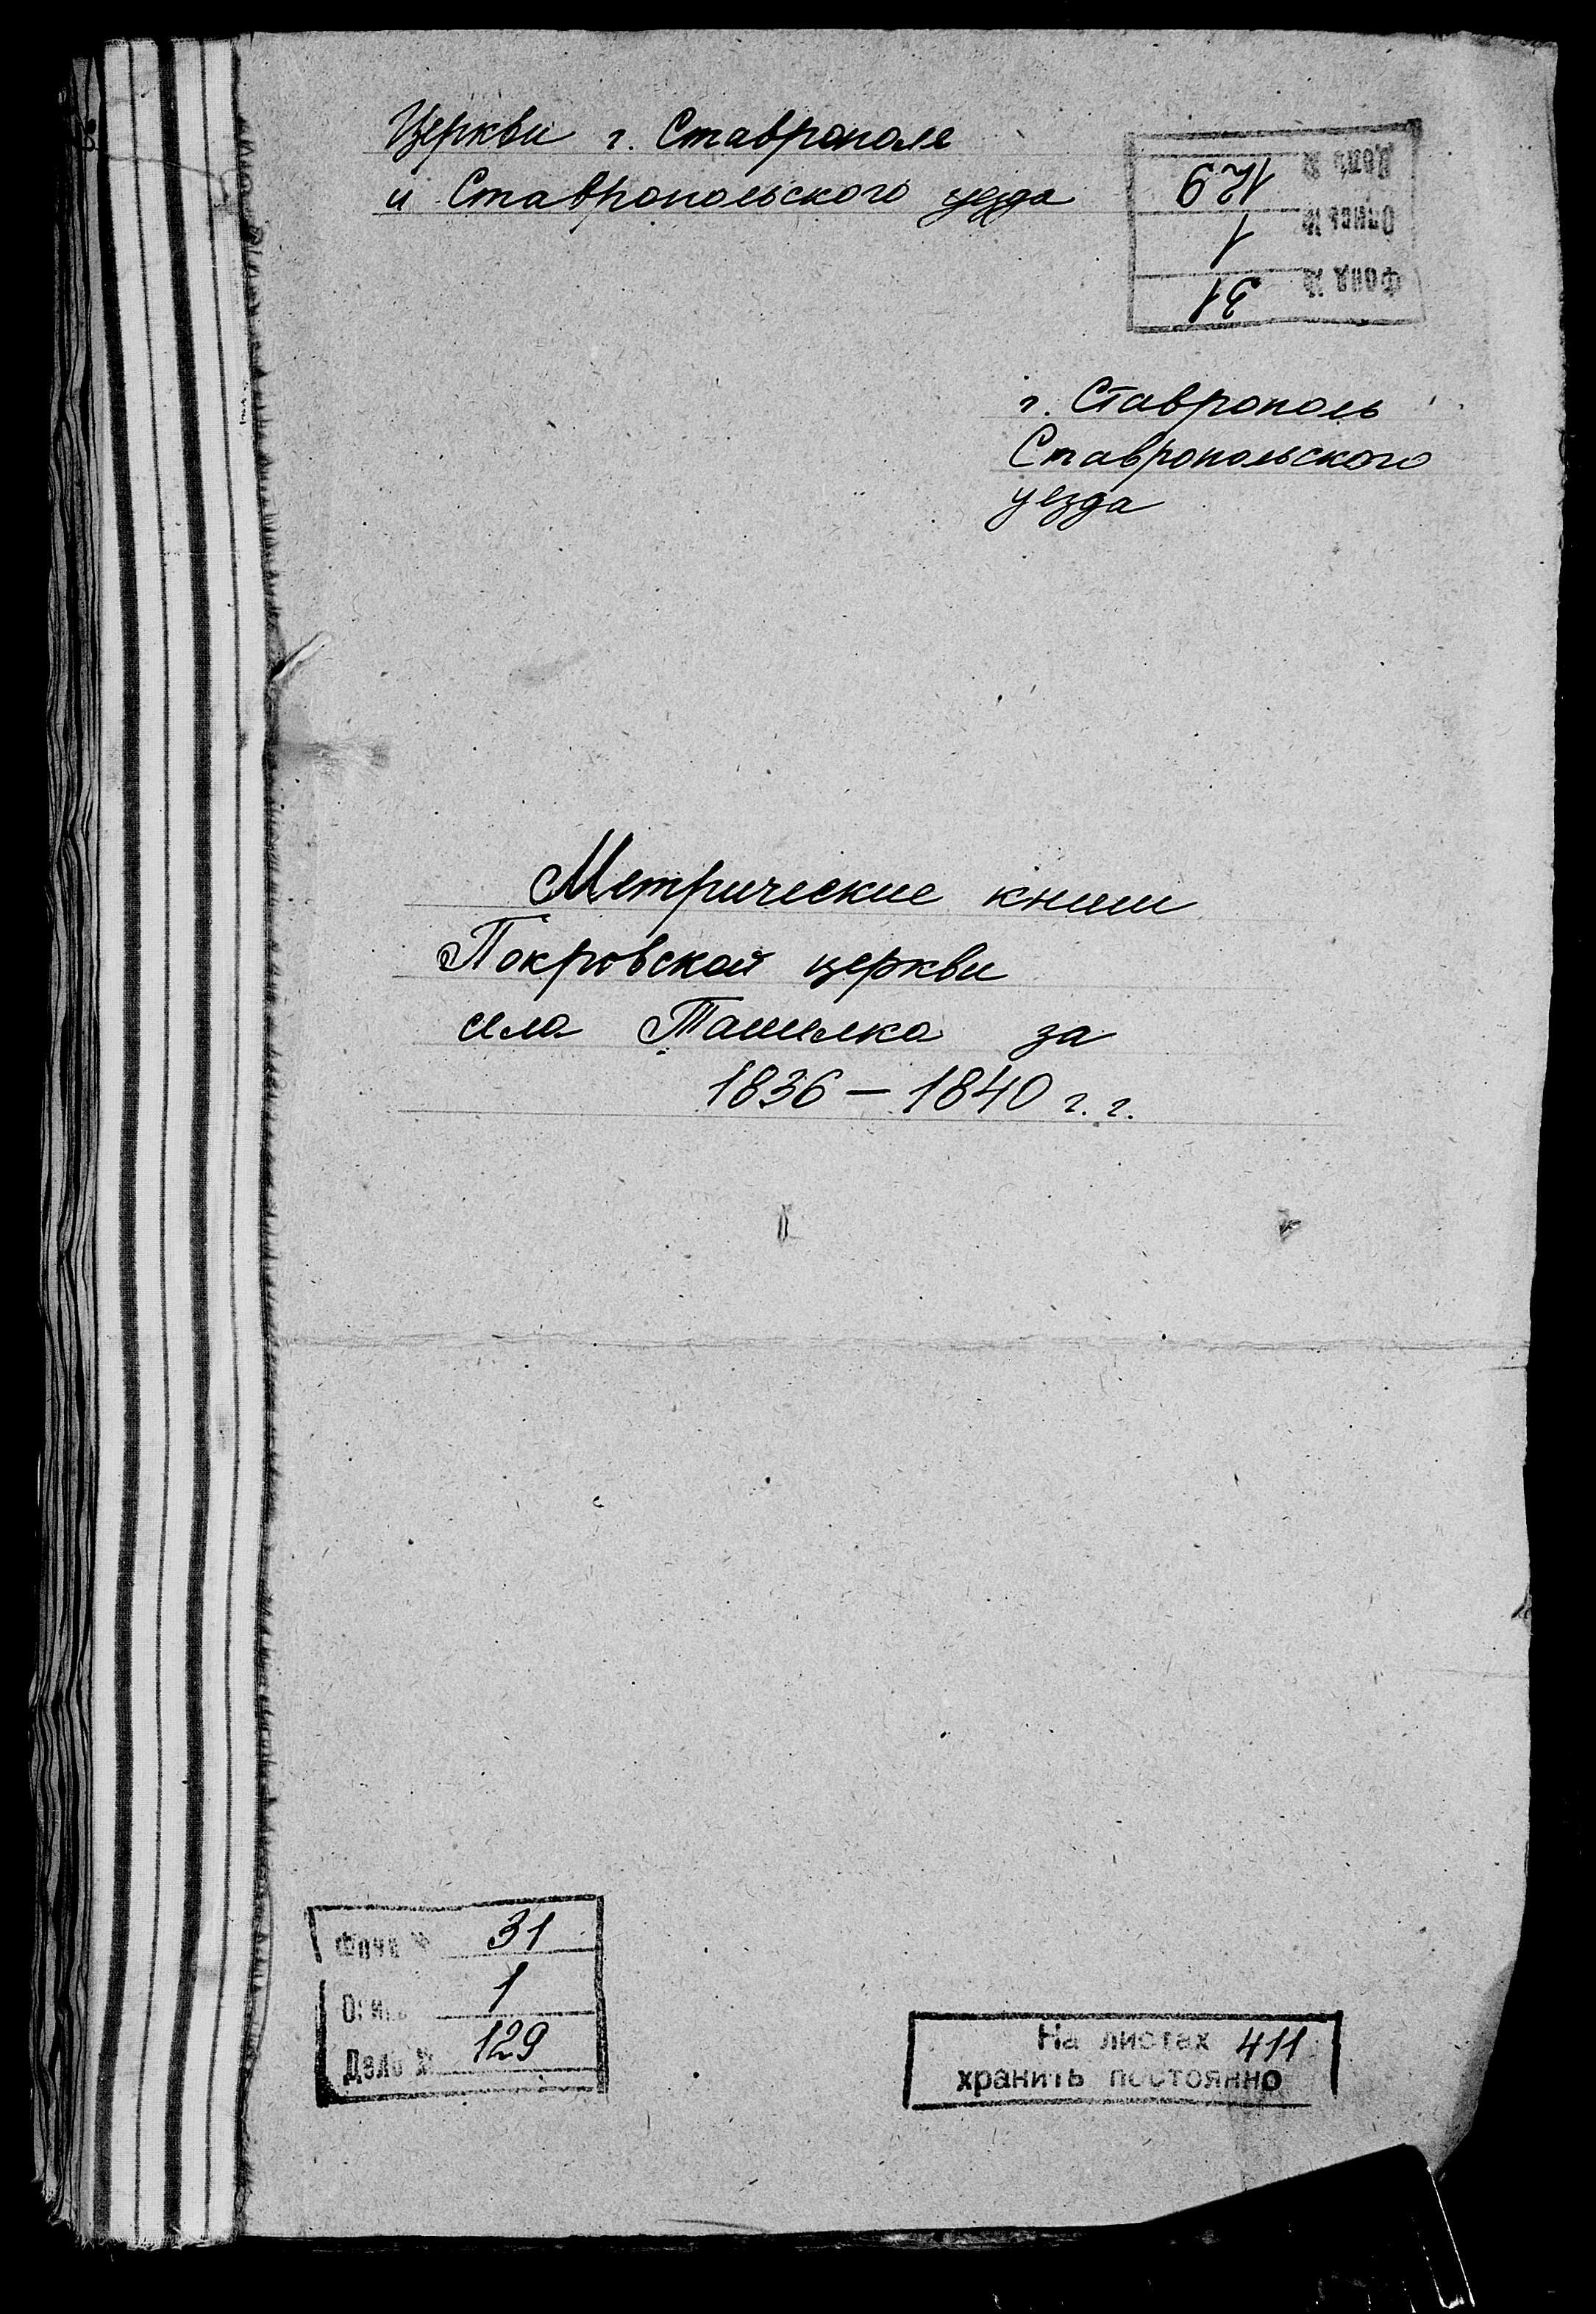 Церкви г. Ставрополя
и Ставропольского уезда
Дело № 129
Опись № 1
Фонд № 31
г. Ставрополь
Ставропольского
уезда
Метрические книги
Покровской церкви
села Ташелка за
1836 – 1840 г. г.
Фонд № 31
Опись 1
Дело № 129
На листах 411
хранить постоянно